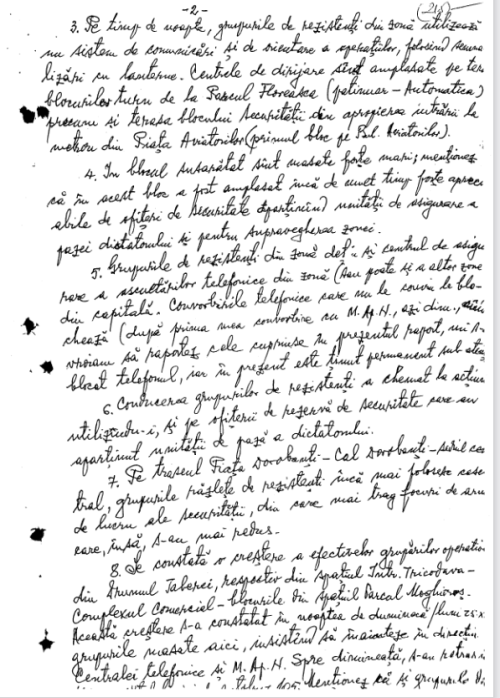 -2-
3. Pe timp de noapte, grupurile de rezistenți din zonă utilizează
un sistem de comunicări și de orientare a agenturilor, folosind semna
lizări cu lanterne. Centrele de dirijare sînt amplasate pe ter
blocurilor turn de la Parcul Floreasca (patinuar - Automatica)
precum și terasa blocului Securității din apropierea intrării la
metrou din Piața Aviatorilor (primul bloc pe Bul. Aviatorilor).
4. În blocul susarătat sînt masate forțe mari; menționez
că în acest bloc a fost amplasat încă de mult timp forțe aprec
iabile de ofițeri de securitate aparținînd unității de asigurare a
pazei dictatorului și pentru supravegherea zonei.
5. Grupurile de rezistenți din zonă dețin și centrul de asigu
rare a ascultărilor telefonice din zonă (sau poate și a altor zone
din capitală. Convorbirile telefonice care nu le convin le blo-
chează (după prima mea convorbire cu M.Ap.N., azi dim.,
vroiam să raportez cele cuprinse în prezentul raport, mi s-a
blocat telefonul, iar în prezent este ținut permanent sub
6. Conducerea grupurilor de rezistenți a chemat la acțiune
utilizîndu-i, și pe ofițerii de rezervă de securitate care au
aparținut unității de pază a dictatorului.
7. Pe traseul Piața Dorobanți - Cal. Dorobanți -
tral, grupurile răzlețe de rezistenți încă mai folosesc case
de lucru ale securității, din care mai trag focuri de arm
care, însă, s-au mai redus.
8. Se constată o creștere a efectivelor grupărilor operative
din Drumul Taberei, respectiv din spațiul Intr. Tricodava -
Complexul Comercial - blocurile din spațiul Parcul Moghioroș.
Această creștere s-a constatat în noaptea de duminică/luni
grupurile masate aici, insistînd să înainteze în direcția
Centralei telefonice și M.Ap.N. Spre dimineață, s-au retras
menționez că și grupurile